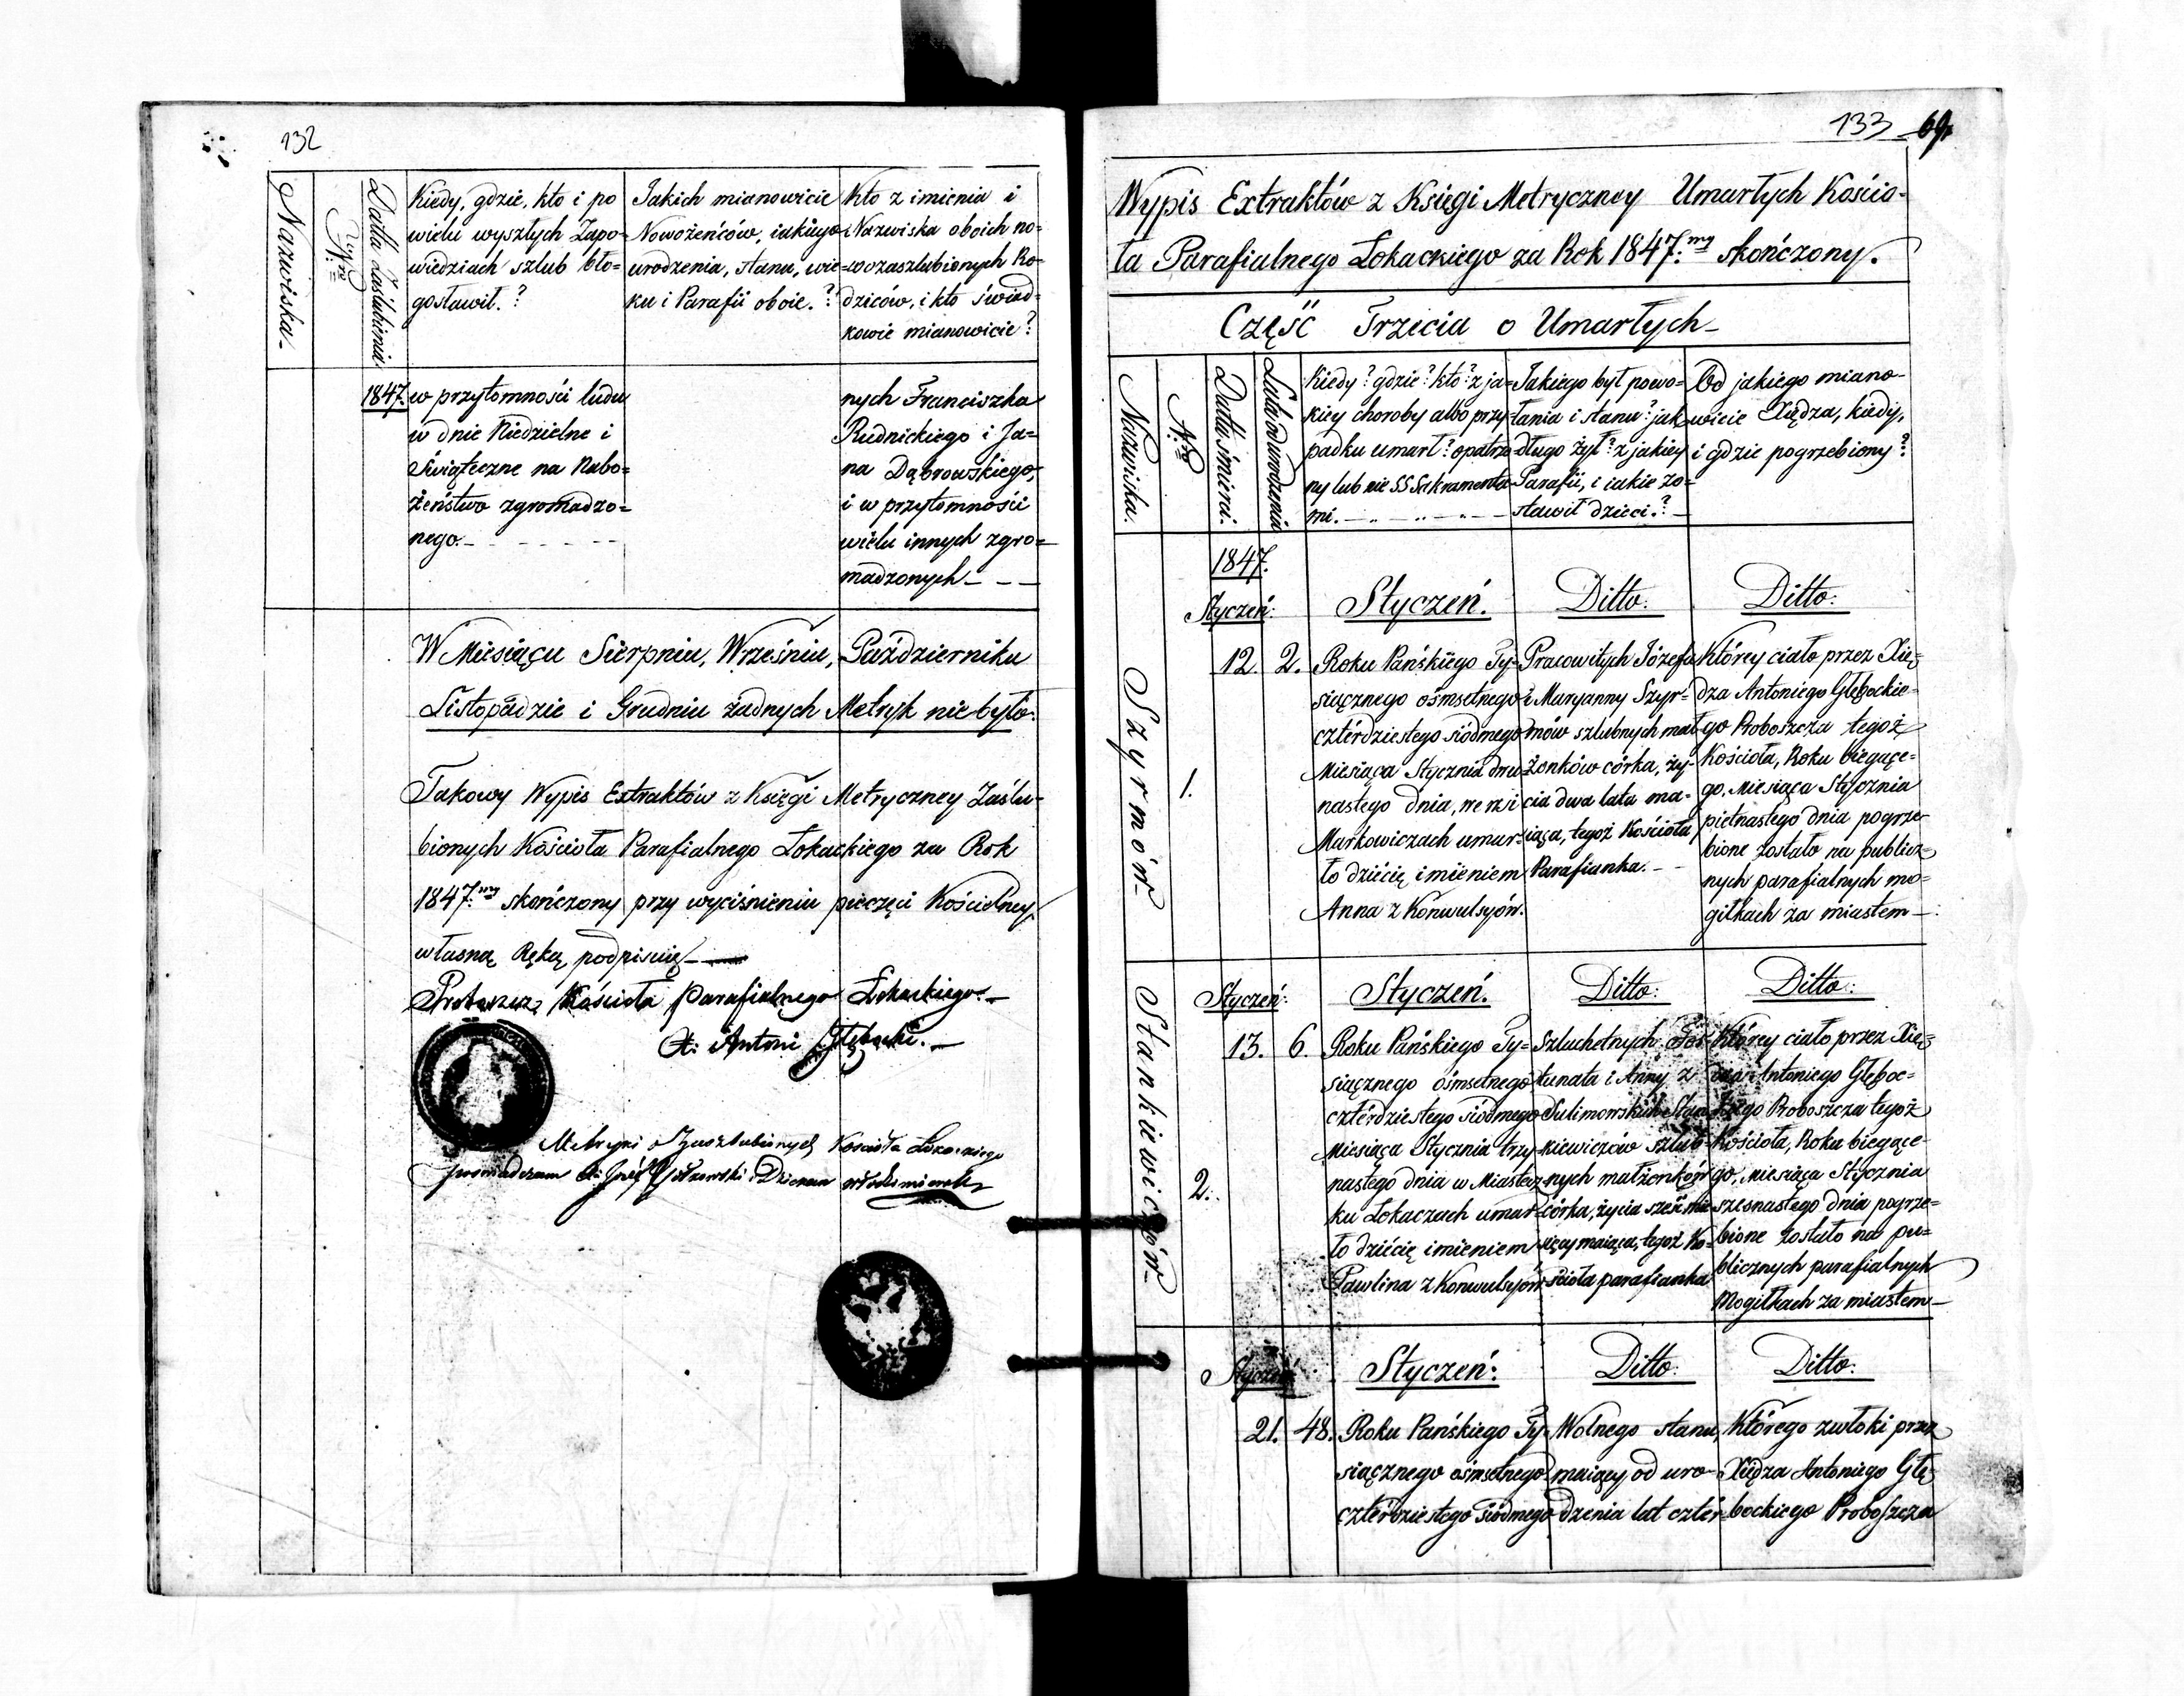 132
Nazwiska.
Nro
Datta Zaślubienia
Kiedy, gdzie, kto i po
wielu wyszłych Zapo=
wiedziach szlub bło=
gosławił.?
Jakich mianowicie
Nowożeńców, iakiego
urodzenia, stanu, wie=
ku i Parafii oboie.?
Kto z imienia i
Nazwiska oboich no=
wozaszlubionych Ro=
dziców, i kto świad=
kowie mianowicie?
1847.
w przytomności ludu
w dnie Niedzielne i
Świąteczne na Nabo=
żeństwo zgromadzo=
nego.
nych Franciszka
Rudnickiego i Ja=
na Dąbrowskiego,
i w przytomności
wielu innych zgro=
madzonych
W Miesiącu Sierpniu, Wrześniu, Październiku
Listopadzie i Grudniu żadnych Metryk nie było.
Takowy Wypis Extraktów z Księgi Metryczney Zaślu=
bionych Kościoła Parafialnego Łokackiego za Rok
1847.my skończony przy wyciśnieniu pieczęci Kościelney
własną Ręką podpisuię
Proboszcz Kościoła Parafialnego Łokackiego.
X. Antoni Głębocki.
Metryki Zaszlubionych Kościoła Łokackiego
133 69.
Wypis Extraktów z Księgi Metryczney Umarłych Kościo=
ła Parafialnego Łokackiego za Rok 1847.my skończony.
Część Trzecia o Umarłych
Nazwiska.
Nro
Datta śmierci.
Lata od urodzenia
Kiedy? gdzie? kto? z ja=
kiey choroby albo przy=
padku umarł? opatrzo=
ny lub nie SS Sakramenta=
mi.
Jakiego był powo=
łania i stanu? jak
długo żył? z jakiey
Parafii, i iakie zo=
stawił dzieci.?
Od jakiego miano=
wicie Xiędza, kiedy,
i gdzie pogrzebiony?
1847.
Styczeń:
Styczeń.
Ditto:
Ditto:
Szyrmów
1.
12.
2.
Roku Pańskiego Ty=
siącznego ośmsetnego
czterdziestego siódmego
Miesiąca Stycznia dwu=
nastego dnia, we wsi
Markowiczach umar=
ło dziécię imieniem
Anna z Konwulsyów.
Pracowitych Józefa
i Maryanny Szyr=
mów szlubnych mał=
żonków córka, ży=
cia dwa lata ma=
iąca, tegoż Kościoła
Parafianka.
Którey ciało przez Xię=
dza Antoniego Głębockie=
go Proboszcza tegoż
Kościoła, Roku biegące=
go, Miesiąca Stycznia
piętnastego dnia pogrze=
bione zostało na publicz=
nych parafialnych mo=
giłkach za miastem
Styczeń:
Styczeń.
Ditto:
Ditto:
Stankiewiczów
2.
13.
6.
Roku Pańskiego Ty=
siącznego ośmsetnego
czterdziestego siódmego
Miesiąca Stycznia trzy=
nastego dnia w Miastecz=
ku Łokaczach umar=
ło dziécię imieniem
Pawlina z Konwulsyów
Szlachetnych For=
tunata i Anny z
Sulimowskich Stan=
kiewiczów szlub=
nych małżonków
córka, życia sześć mie=
sięcy maiąca, tegoż Ko=
ścioła parafianka
Którey ciało przez Xię=
dza Antoniego Głęboc=
kiego Proboszcza tegoż
Kościoła, Roku biegące=
go, Miesiąca Stycznia
szesnastego dnia pogrze=
bione zostało na pu=
blicznych parafialnych
Mogiłkach za miastem
Styczeń
Styczeń:
Ditto:
Ditto:
21.
48.
Roku Pańskiego Ty=
siącznego ośmsetnego
czterdziestego siódmego
Wolnego stanu,
maiący od uro=
dzenia lat czter=
Którego zwłoki przez
Xiędza Antoniego Głę=
bockiego Proboszcza